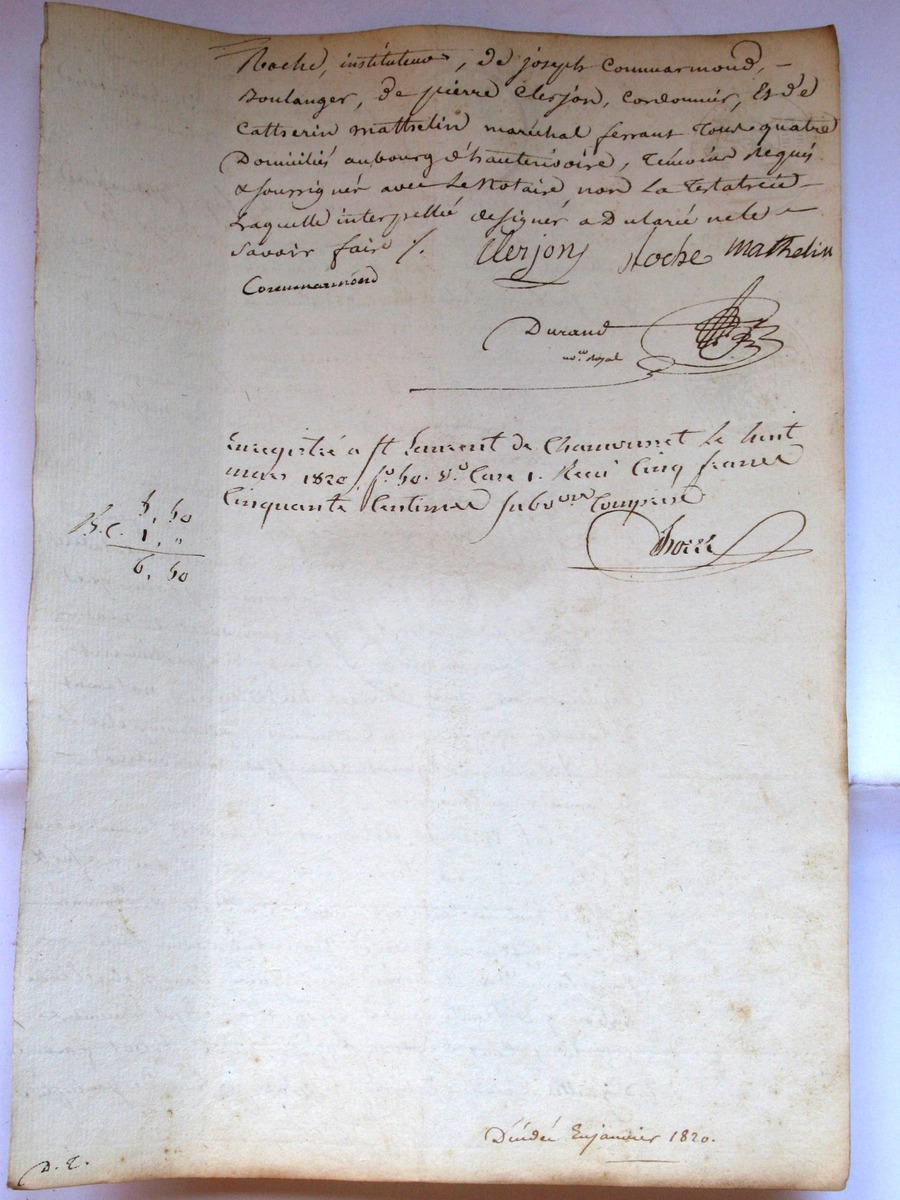 Roche, instituteur, de joseph Commarmond, -
Boulanger, de pierre Clerjon, Cordonnier, Et de
Catherin mathelin maréchal ferrant Tous quatre
Domiciliés au bourg d'hauterivoire, Témoins Requis
& soussignés avec Le Notaire non La Testatrice -
Laquelle interpellée de signer a Déclaré ne le -
Savoir faire /.
Clerjon Roche Mathelin
Commarmond
Durand
no.re Royal
Enregistré a St Laurent de Chamousset le huit
mars 1820, fo. 50. Vo. Case 1. Recu Cinq francs
Cinquante Centimes subv.on Comprise
5, 50
B. C. 1, "
6, 50
Décédée En janvier 1820.
D. T.